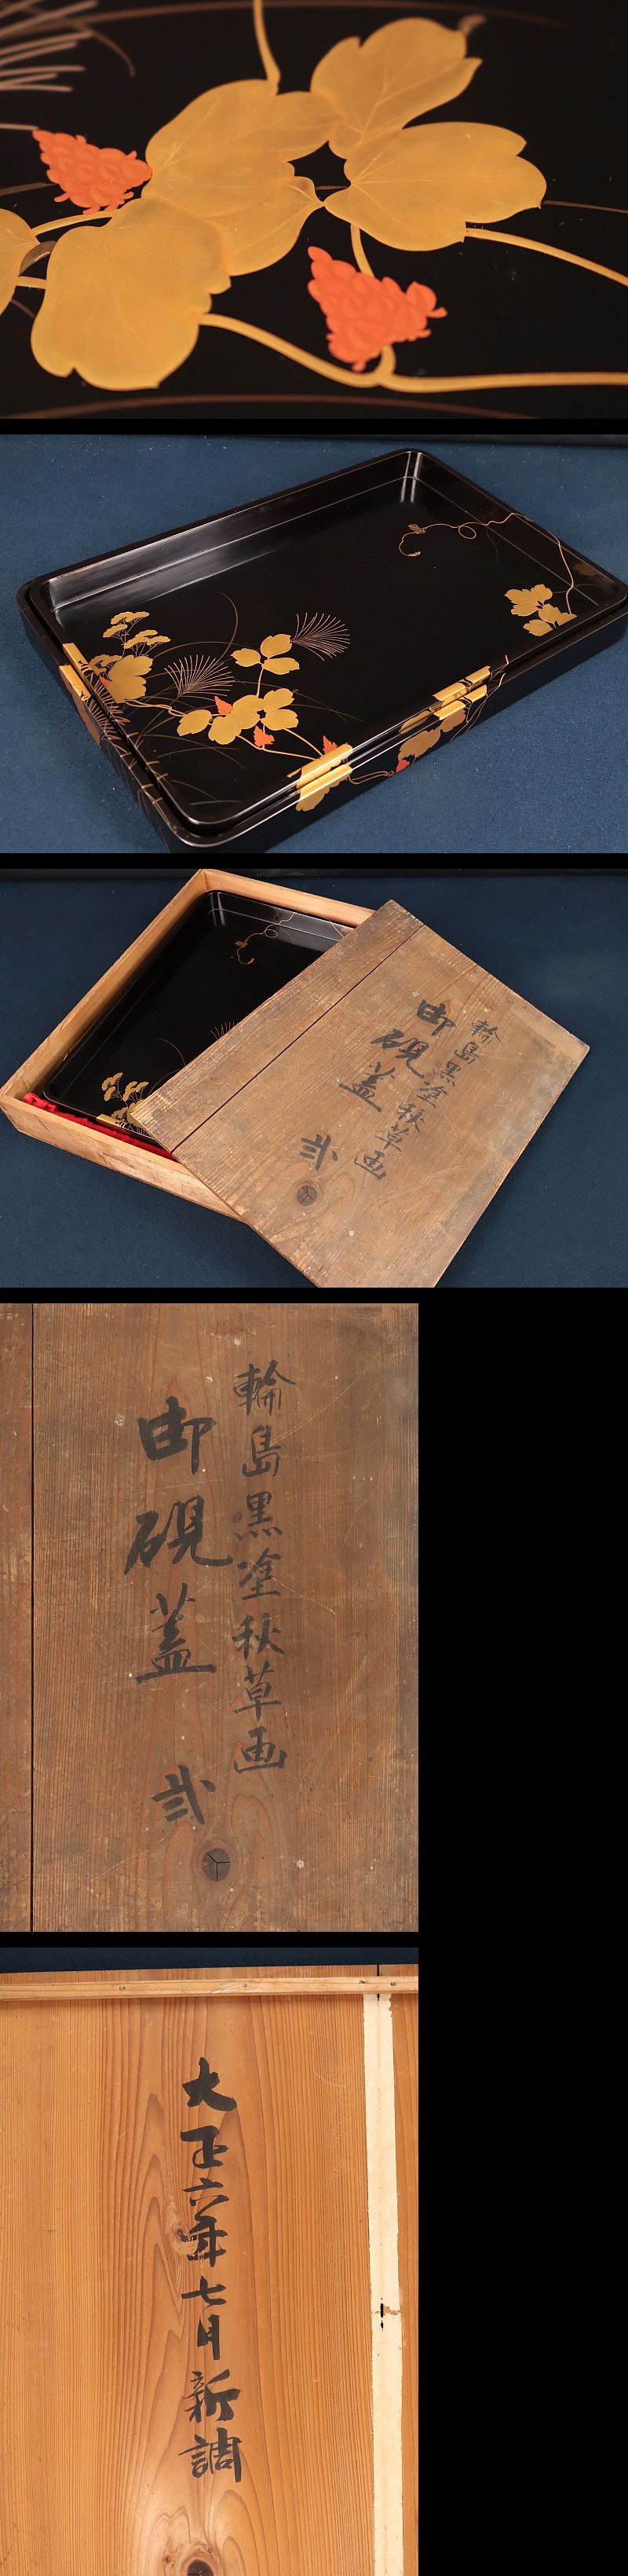 輪島黒塗秋草画
御硯蓋 弐
輪島黒塗秋草画
御硯蓋 弐
大正六年七月新調